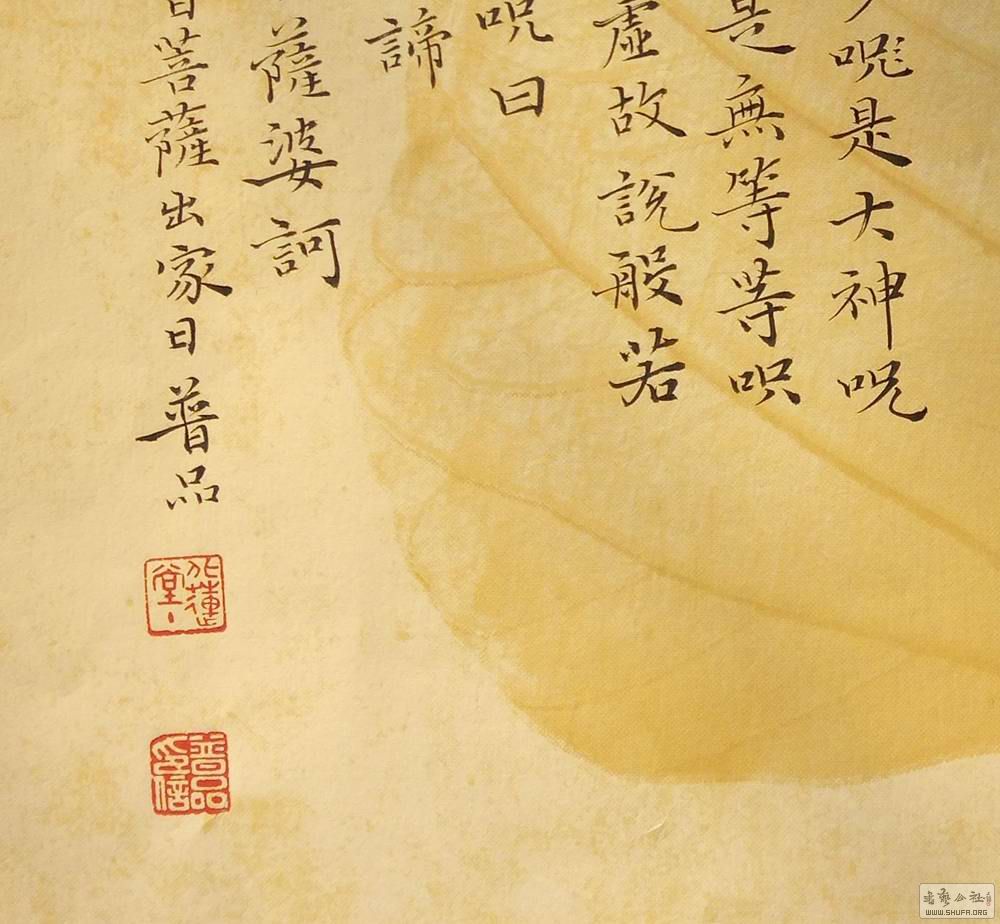 咒是大神咒
是無等等呪
虛故說般若
呪曰
諦
薩婆訶
菩薩出家日普品
蓮堂
普品印信
書藝公社
WWW.SHUFA.ORG